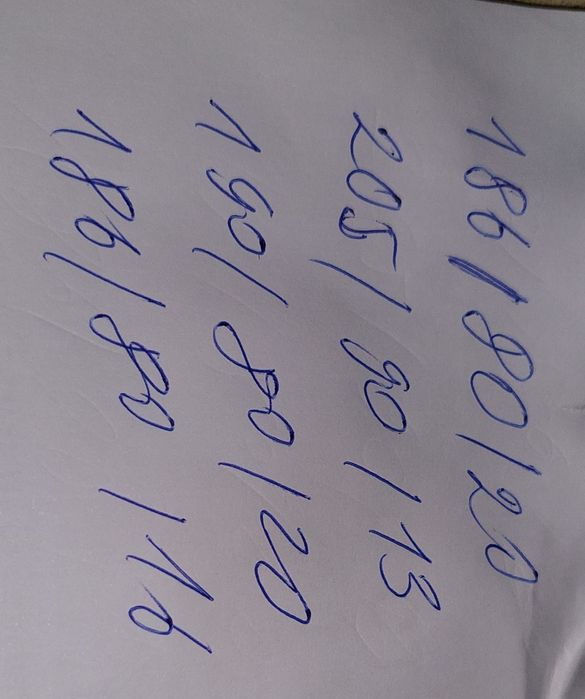 186/80/20
205/90/13
190/80/20
186/80/16